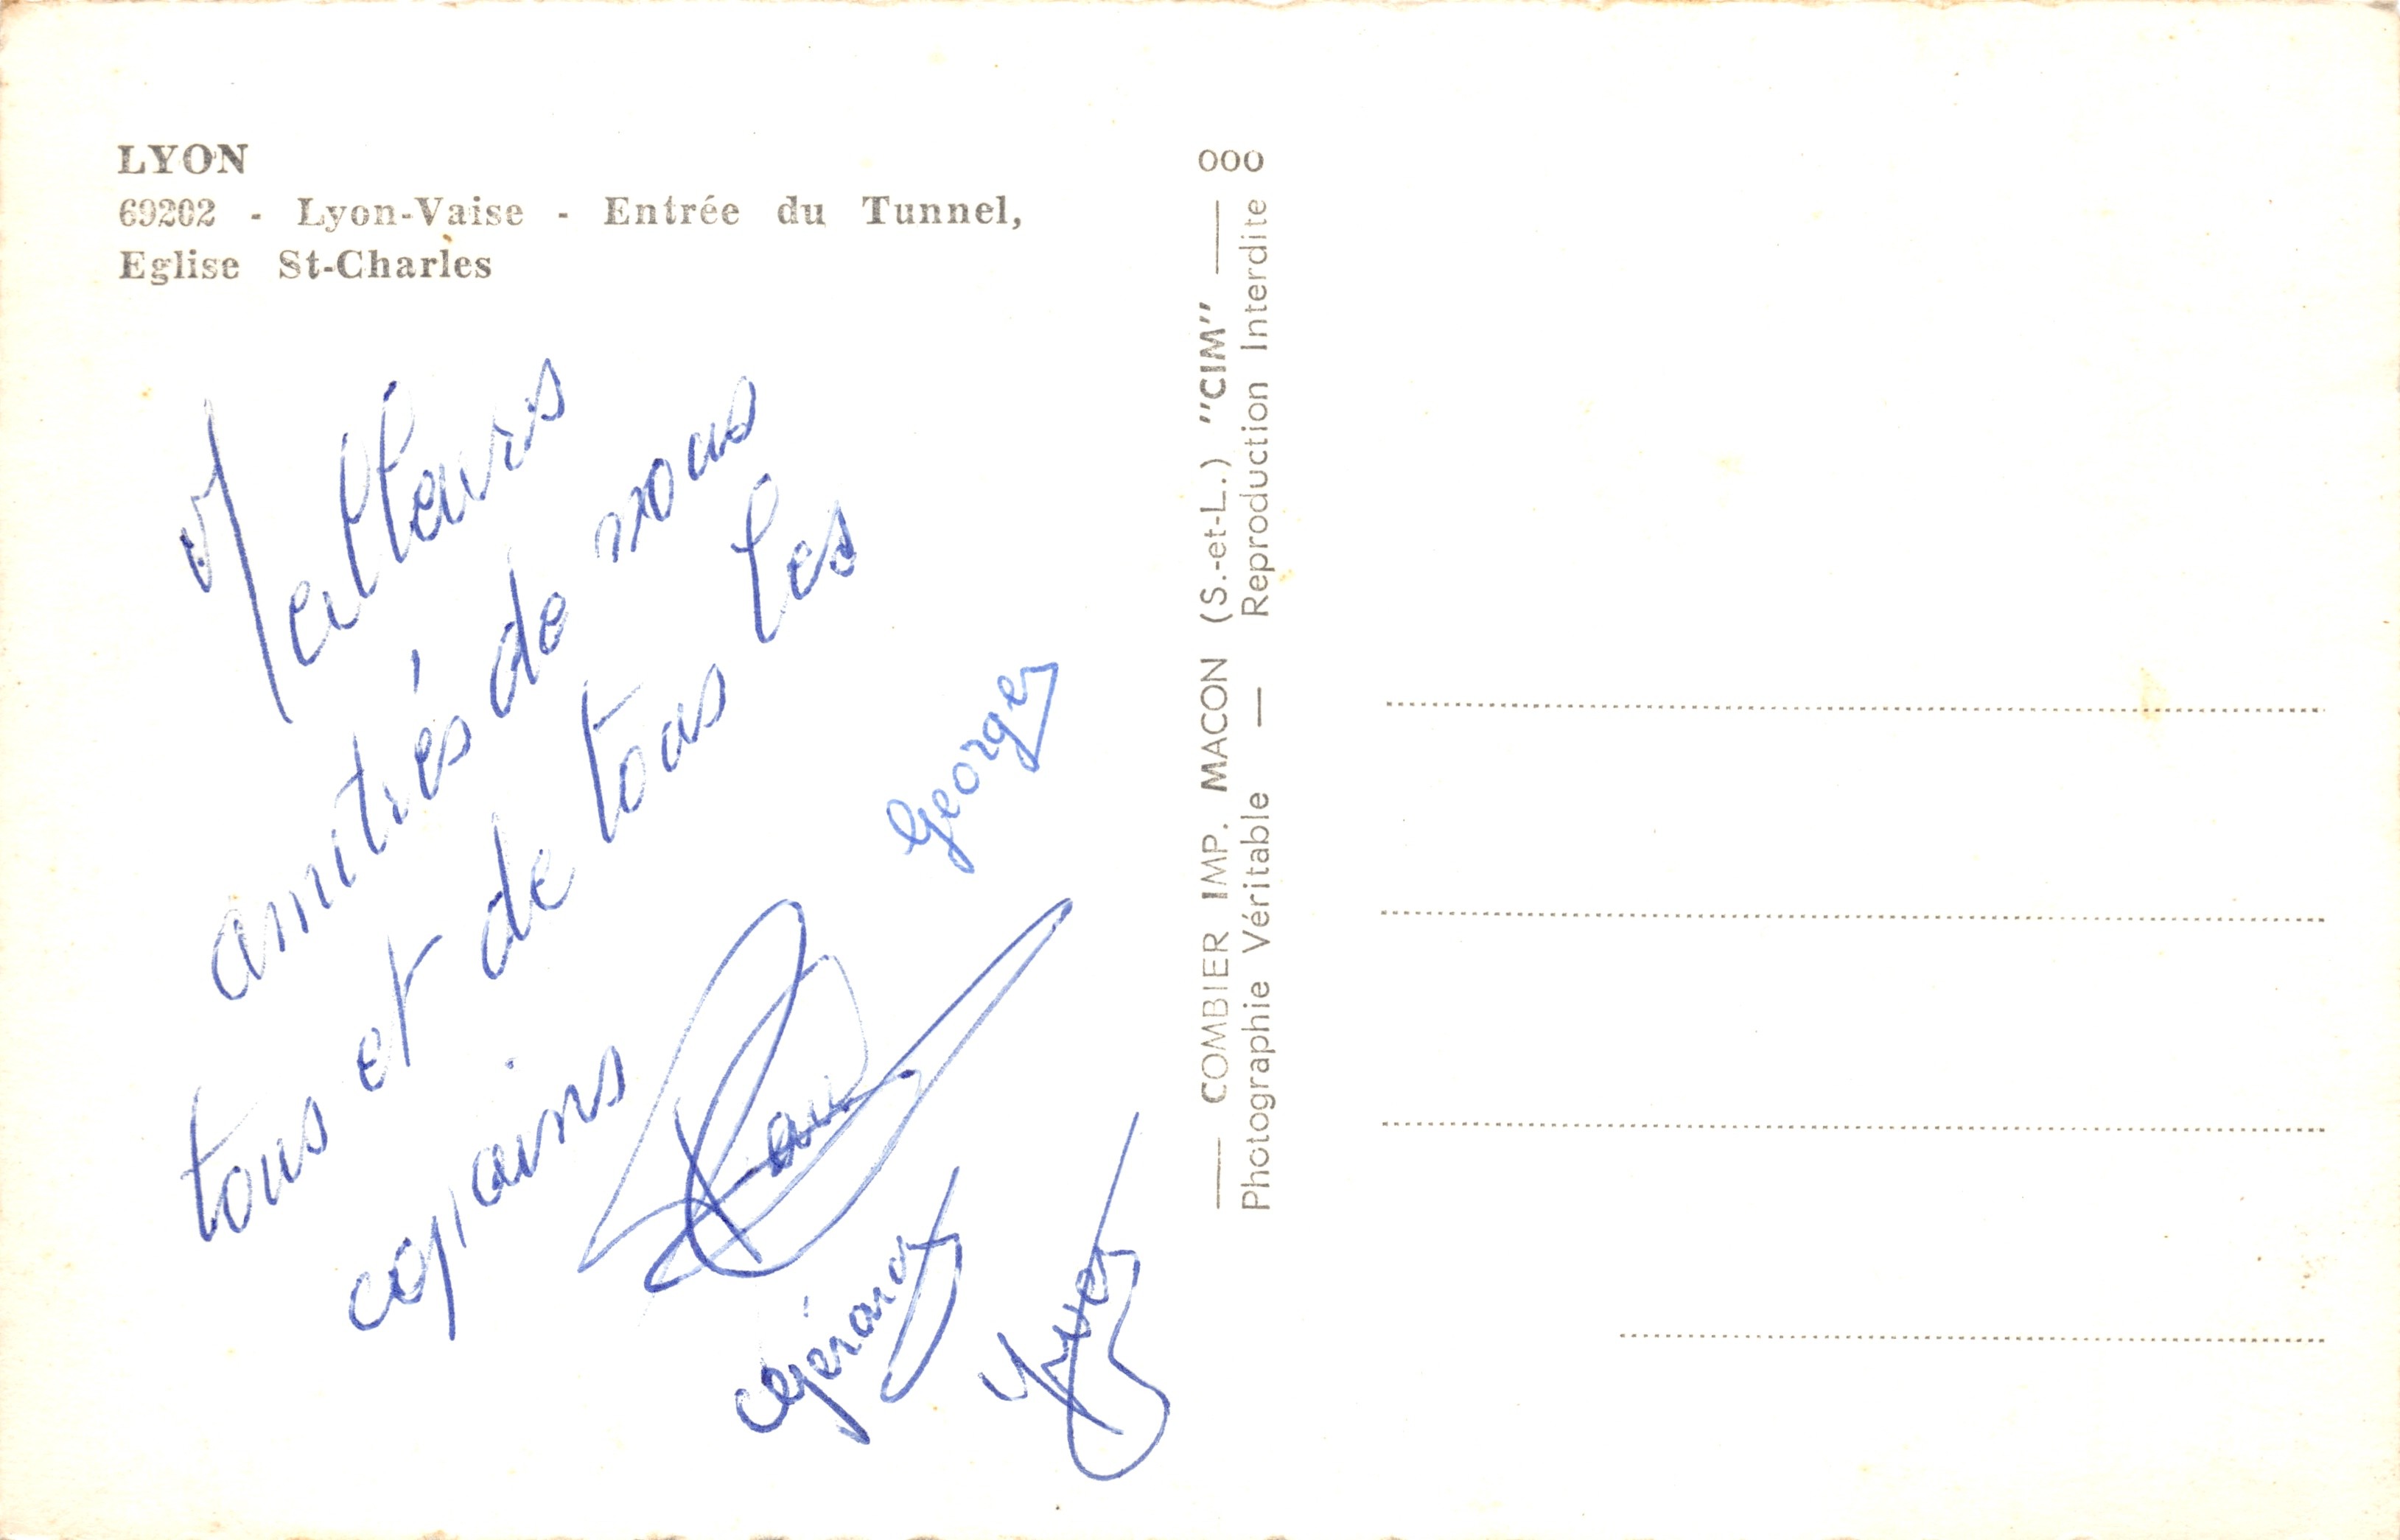 LYON
69202 - Lyon-Vaise - Entrée du Tunnel,
Eglise St-Charles
Meilleurs
amitiés de nous
tous et de tous les
copains
Georges
Gérard
Yves
000
COMBIER IMP. MACON (S.-et-L.) "CIM"
Photographie Véritable — Reproduction Interdite